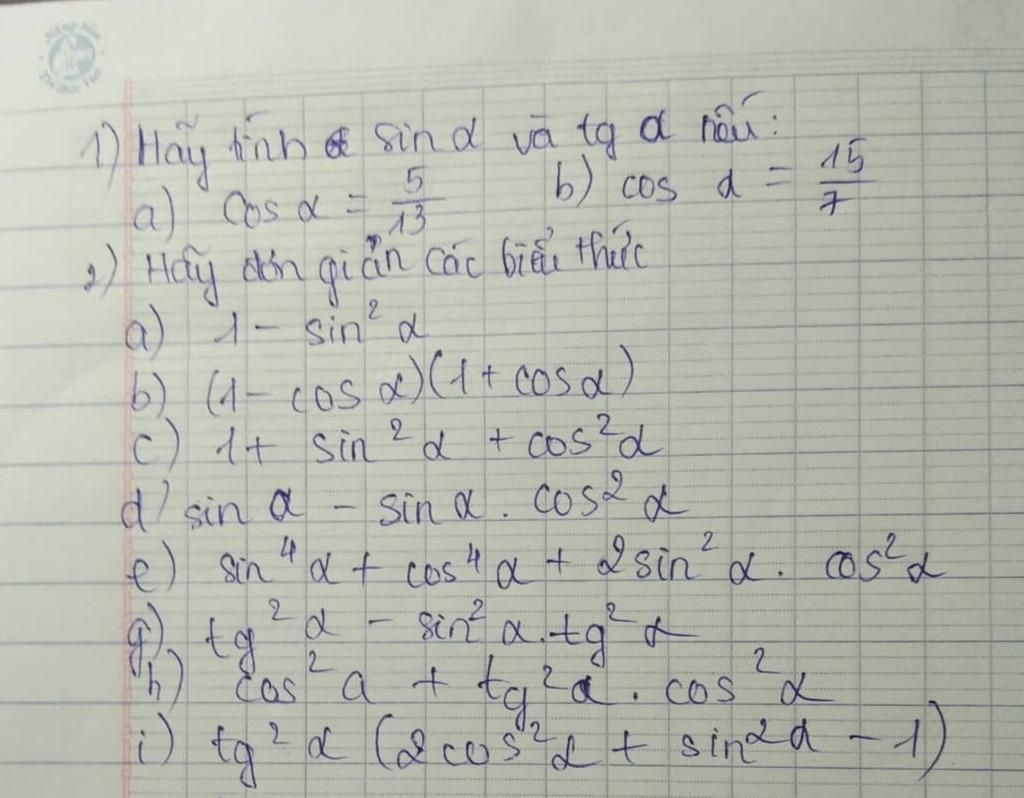 1) Hãy tính sin α và tg α nếu:
a) cos α = 5/13 b) cos α = 15/7
2) Hãy đơn giản các biểu thức
a) 1 - sin² α
b) (1 - cos α)(1 + cos α)
c) 1 + sin² α + cos² α
d) sin α - sin α . cos² α
e) sin⁴ α + cos⁴ α + 2 sin² α . cos² α
g) tg² α - sin² α . tg² α
h) cos² a + tg² α . cos² α
i) tg² α (2 cos² α + sin² α - 1)